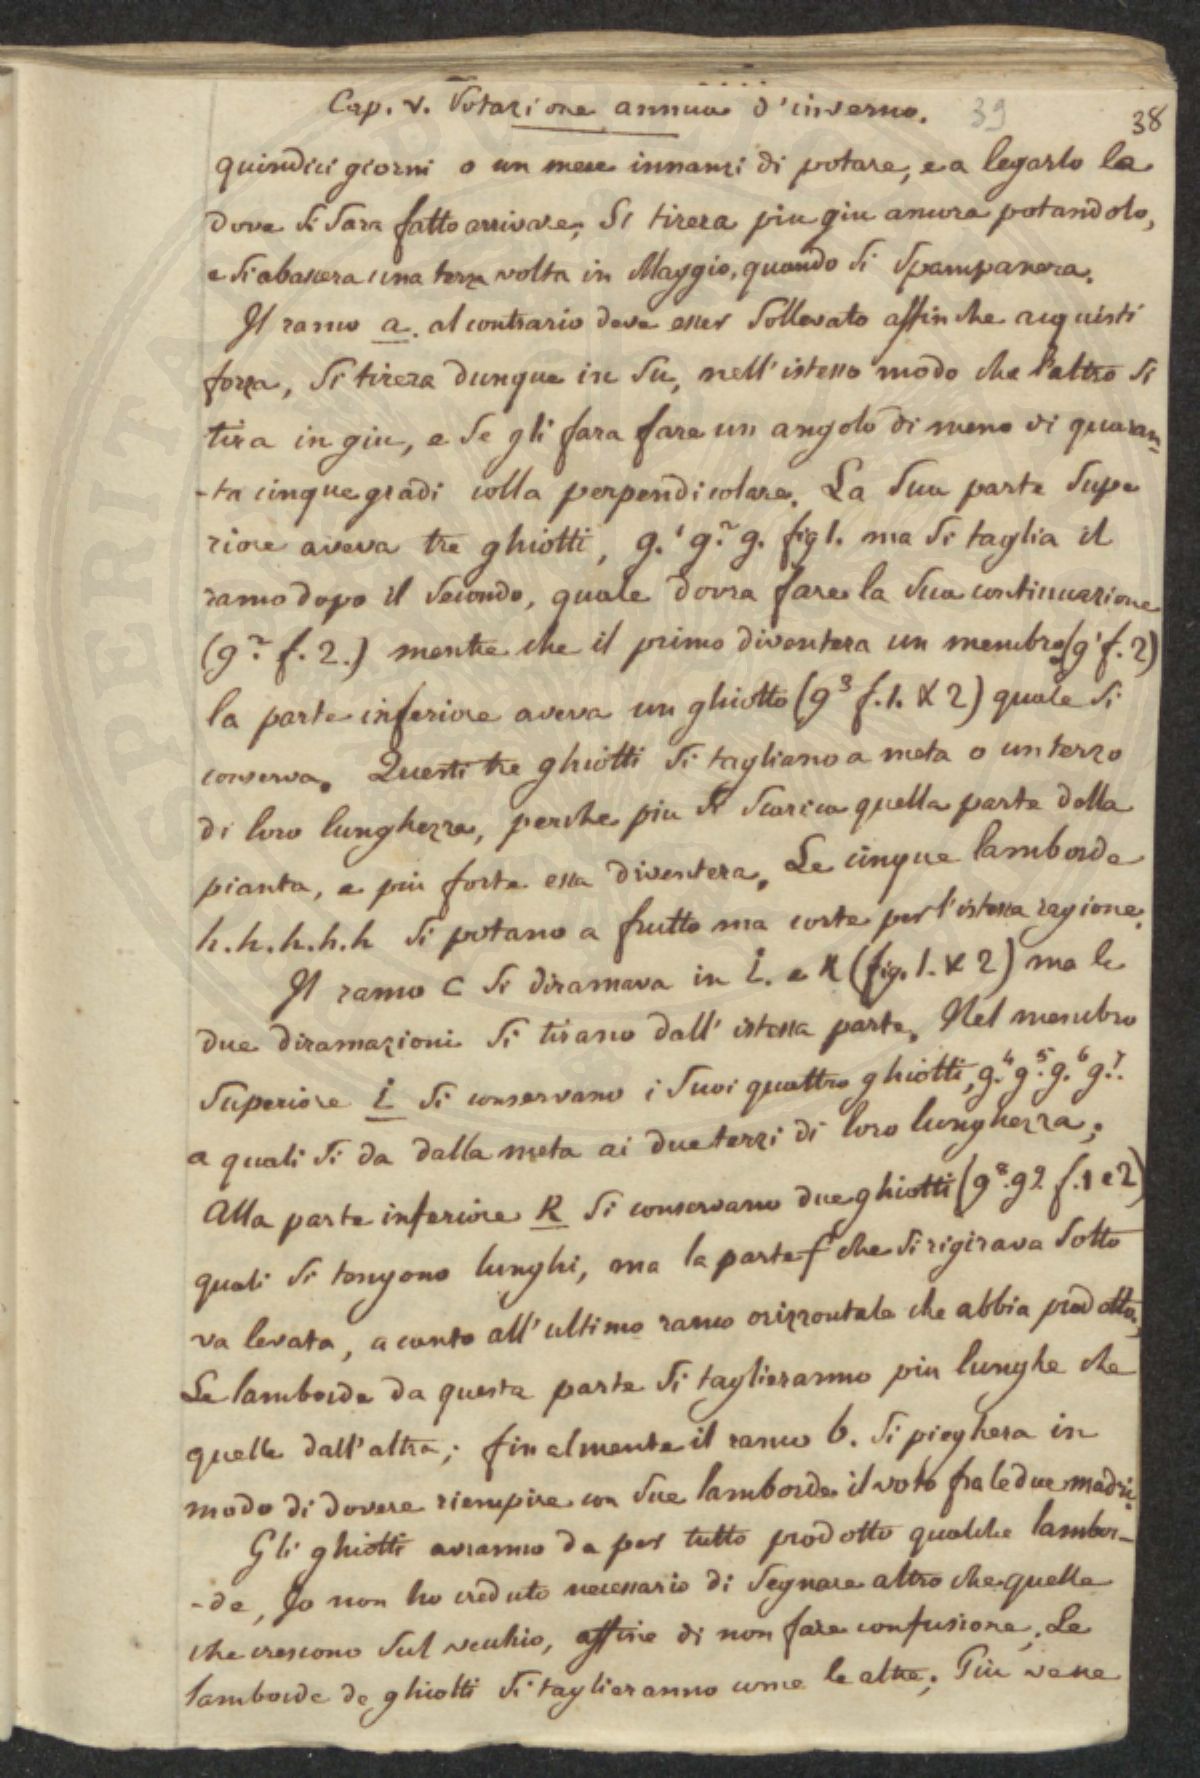 Cap. V. Potazione annua d'inverno. 39 38
quindici giorni o un mese innanzi di potare, e a legarlo la
dove si sara fatto arrivare; Si tirera piu giu ancora potandolo,
e si abassera una terza volta in Maggio, quando si spampanera.
Il ramo a. al contrario deve esser sollevato affinche acquisti
forza, si tirera dunque in su, nell'istesso modo che l'altro si
tira in giu, e se gli fara fare un angolo di meno di quaran-
-ta cinque gradi colla perpendicolare. La sua parte supe
riore aveva tre ghiotti, g.¹ g.² g. fig 1. ma si taglia il
ramo dopo il secondo, quale dovra fare la sua continuazione
(g.² f. 2.) mentre che il primo diventera un membro (g¹ f. 2)
la parte inferiore aveva un ghiotto (g³ f. 1. & 2) quale si
conserva. Questi tre ghiotti si tagliano a meta o un terzo
di loro lunghezza, perche piu si scarica quella parte della
pianta, e piu forte essa diventera. Le cinque lamborde
h. h. h. h. h si potano a frutto ma corte per l'istessa ragione.
Il ramo C si diramava in i. e K (fig. 1. & 2) ma le
due diramazioni si tirano dall'istessa parte. Nel membro
superiore i si conservano i suoi quattro ghiotti, g.⁴ g.⁵ g.⁶ g.⁷.
a quali si da dalla meta ai due terzi di loro lunghezza;
Alla parte inferiore K si conservano due ghiotti (g⁸. g9. f. 1 e 2)
quali si tengono lunghi, ma la parte f che si rigirava sotto
va levata, a canto all'ultimo ramo orizzontale che abbia prodotto,
Le lamborde da questa parte si taglieranno piu lunghe che
quelle dall'altra; finalmente il ramo b. si pieghera in
modo di dovere riempire con sue lamborde il voto fra le due madri.
Gli ghiotti avranno da per tutto prodotto qualche lambor-
-de, Io non ho creduto necessario di segnare altro che quelle
che crescono sul vecchio, affine di non fare confusione; Le
lamborde de ghiotti si taglieranno come le altre; Piu ve ne